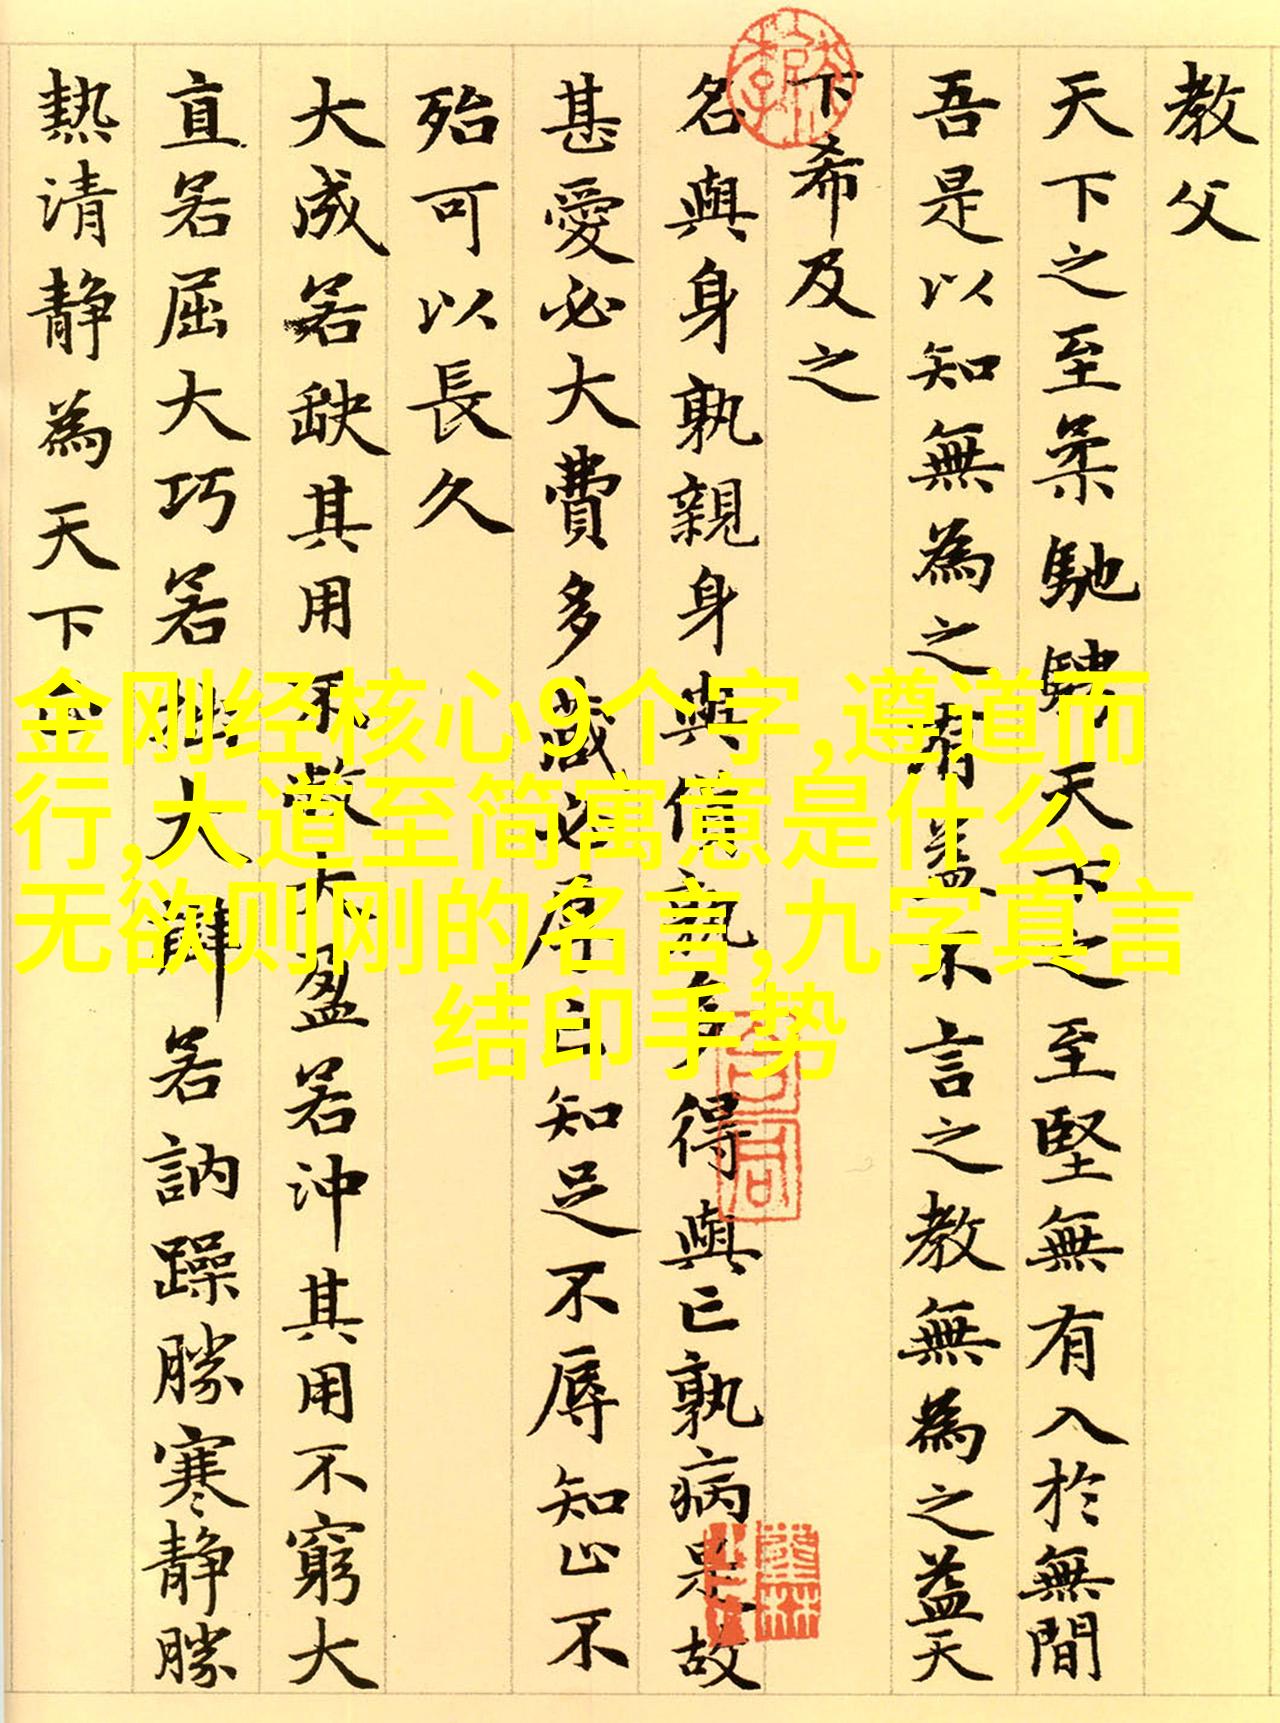 教父
天下之至柔馳騁天下之至堅無有入於無間
吾是以知無為之有益不言之教無為之益天
下希及之
名與身孰親身與貨孰多得與亡孰病是故
甚愛必大費多藏必厚亡知足不辱知止不
殆可以長久
大成若缺其用不敝大盈若沖其用不窮大
直若屈大巧若拙大辯若訥躁勝寒靜勝
熱清靜為天下正
金刚经核心9个字,遵道而
行,大道至简寓意是什么,
无欲则刚的名言,九字真言
结印手势